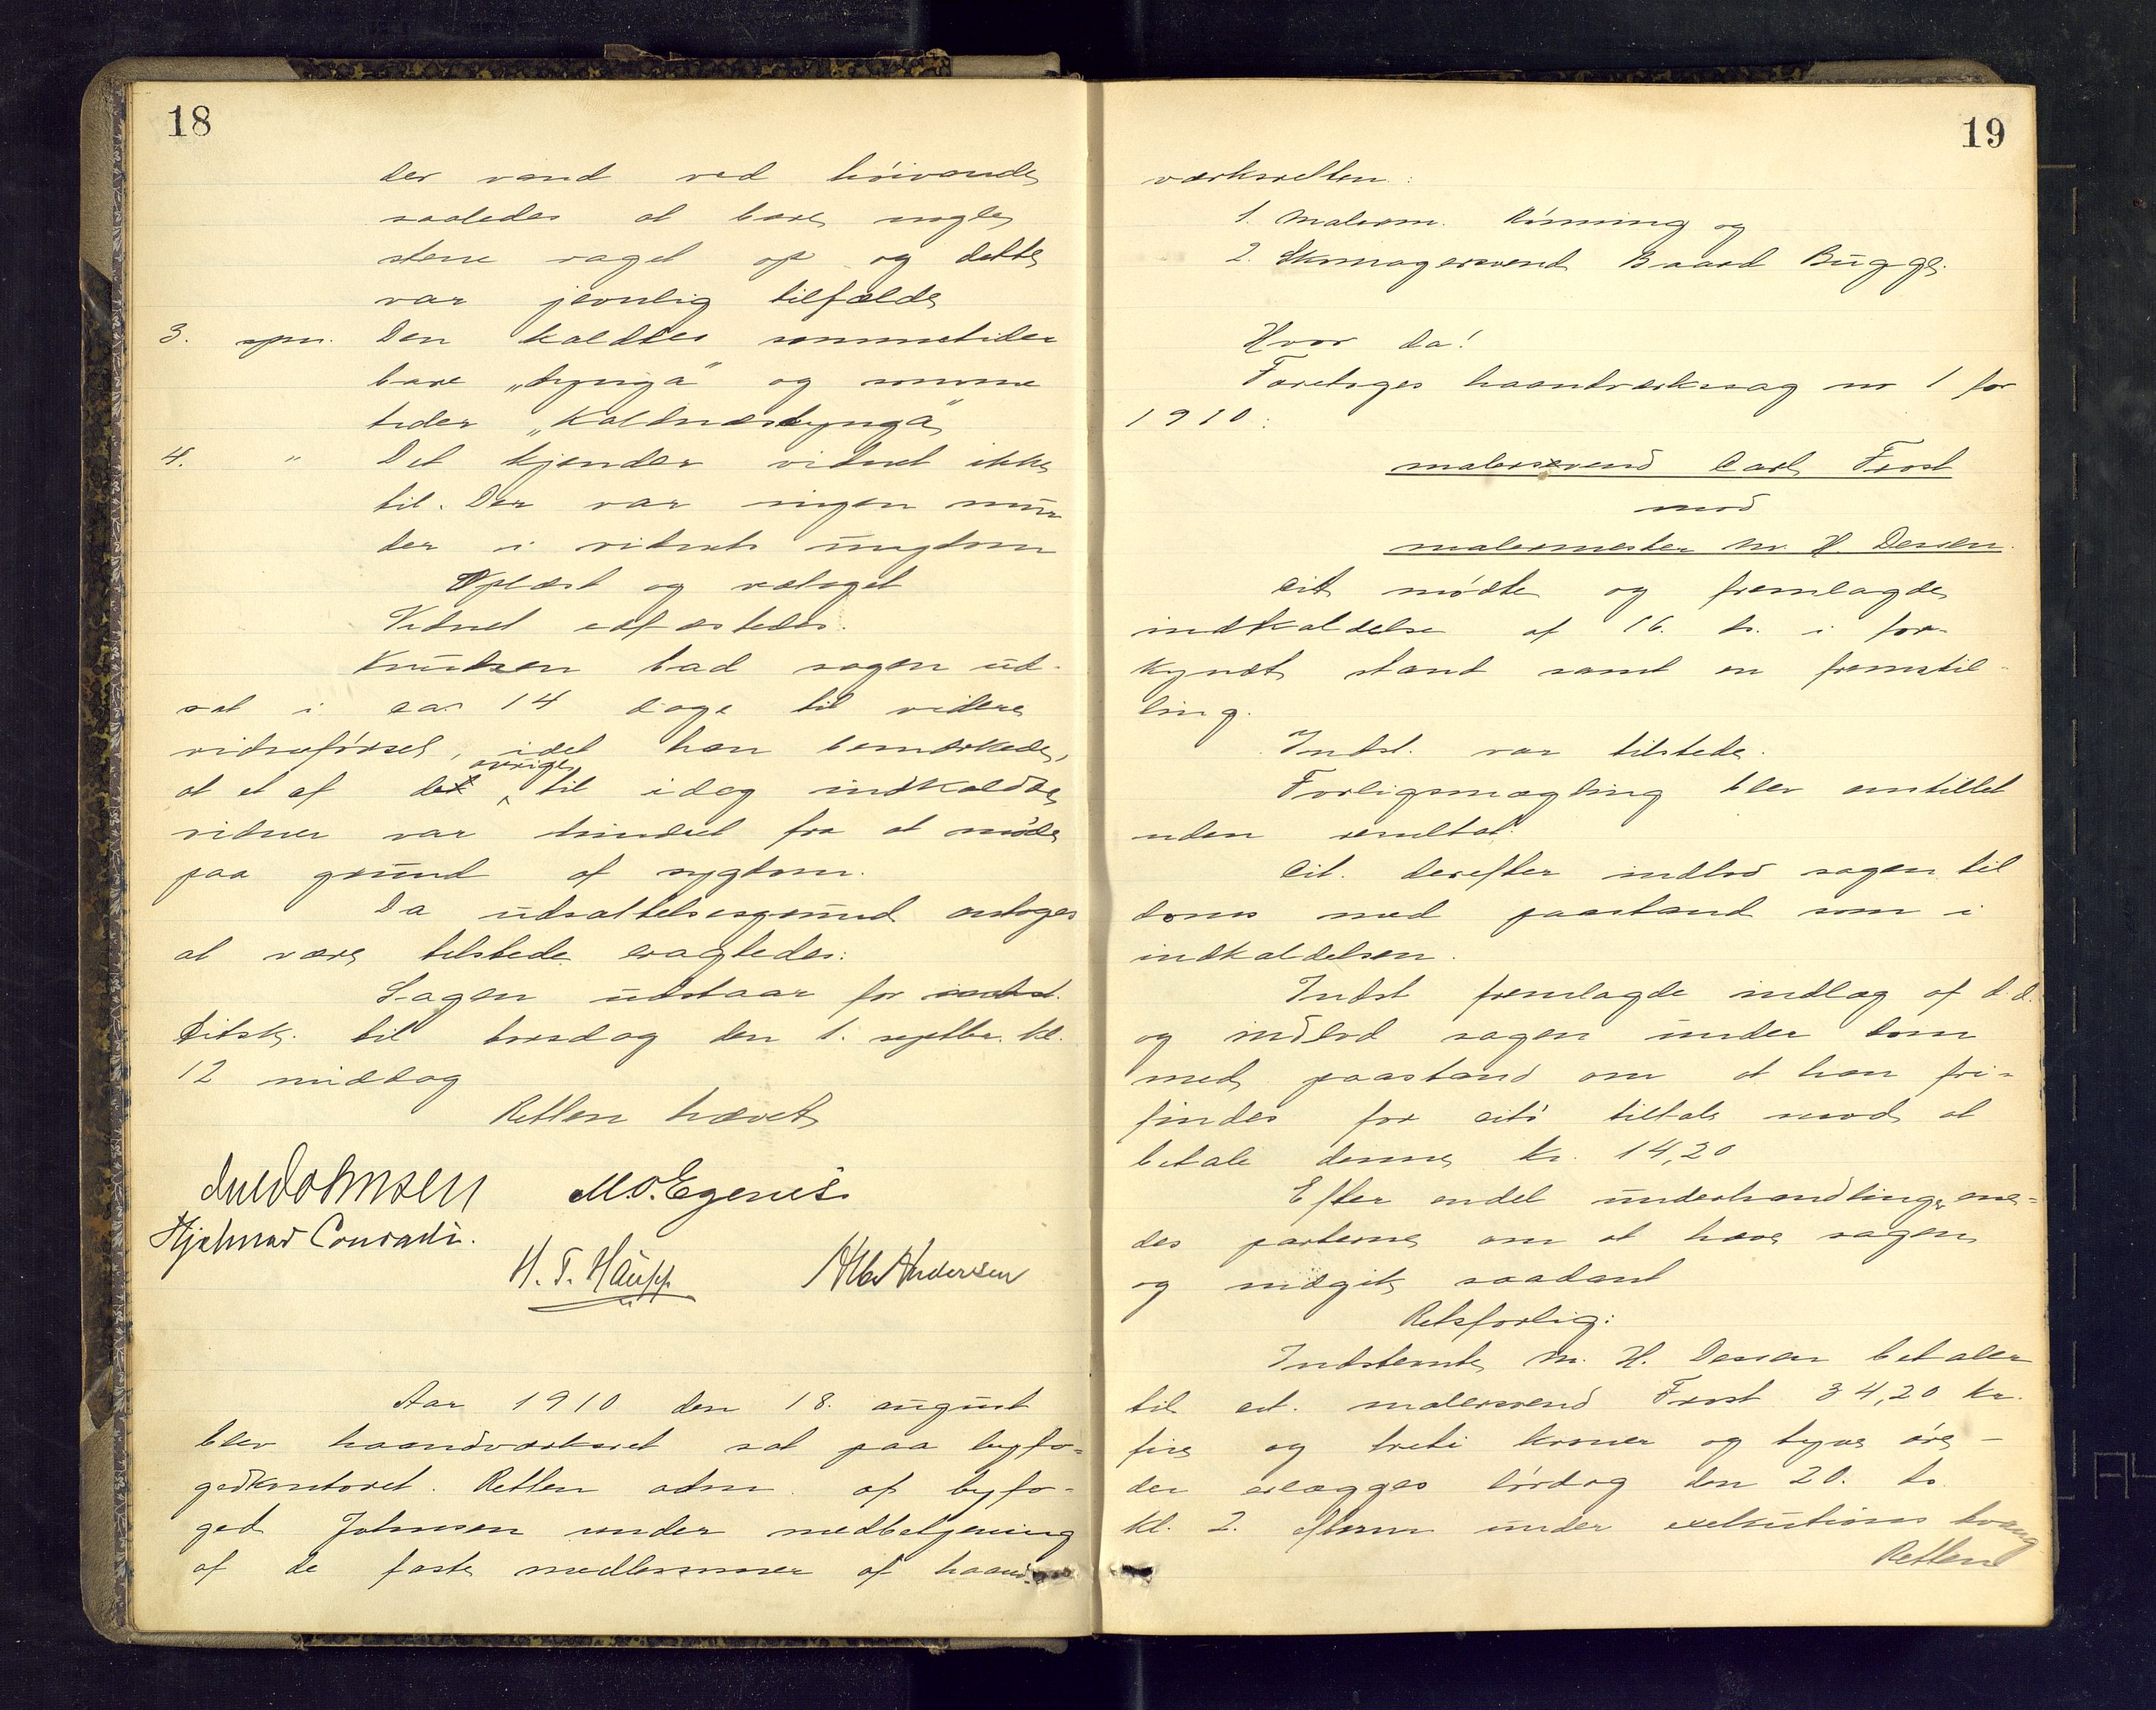 18
der vand ved höivande
saaledes at bare nogle
stene raget op og dette
var jevnlig tilfælde
3. spm. Den kaldtes sommetider
bare „dynga" og somme
tider „Kaldnæsdynga"
4. " Det kjender vidnet ikke
til. Der var ingen mur
der i vidnets ungdom
Oplæst og vedtaget
Vidnet edfæstedes.
Knudsen bad sagen ud-
sat i ca. 14 dage til videre
vidneførsel, idet han bemærkede,
at et af det øvrige til idag indkaldte
vidner var hindret fra at møde
paa grund af sygdom.
Da udsættelsesgrund antoges
at være tilstede eragtedes:
Sagen udstaar for indst.
til torsdag den 1. septbr. kl.
12 middag
Retten hævet
Johnsen M. O. Egenes
Hjelmar Conradi.
H. T. Haupp Alb Andersen
Aar 1910 den 18. august
blev haandverksret sat paa byfo-
gedkontoret. Retten adm. af byfo-
ged Johnsen under medbetjening
af de faste medlemmer af haand-
19
værksretten:
1. Malerm. Rönning og
2. Skomagersvend Baard Bugge.
Hvor da!
Foretoges haandverkssag nr 1 for
1910:
malersvend Carl Frost
mod
malermester M. H. Dessen.
Cit mødte og fremlagde
indkaldelse af 16. ds. i for-
kyndt stand samt en fremstil-
ling.
Indst. var tilstede.
Forligsmægling blev anstillet
uden resultat.
Cit. derefter indlod sagen til
doms med paastand som i
indkaldelsen.
Indst fremlagde indlæg af d.d.
og indlod sagen under dom
med paastand om at han fri-
findes for cits tiltale mod at
betale denne kr. 14,20
Efter endel underhandlinger ene-
des parterne om at hæve sagen
og indgik saadant
Retsforlig:
Indstevnte M. H. Dessen betaler
til cit. malersvend Frost 34,20 kr.
fire og treti kroner og tyve øre -
der erlægges lördag den 20. ds.
kl. 2. efterm under exekutions tvang
Retten